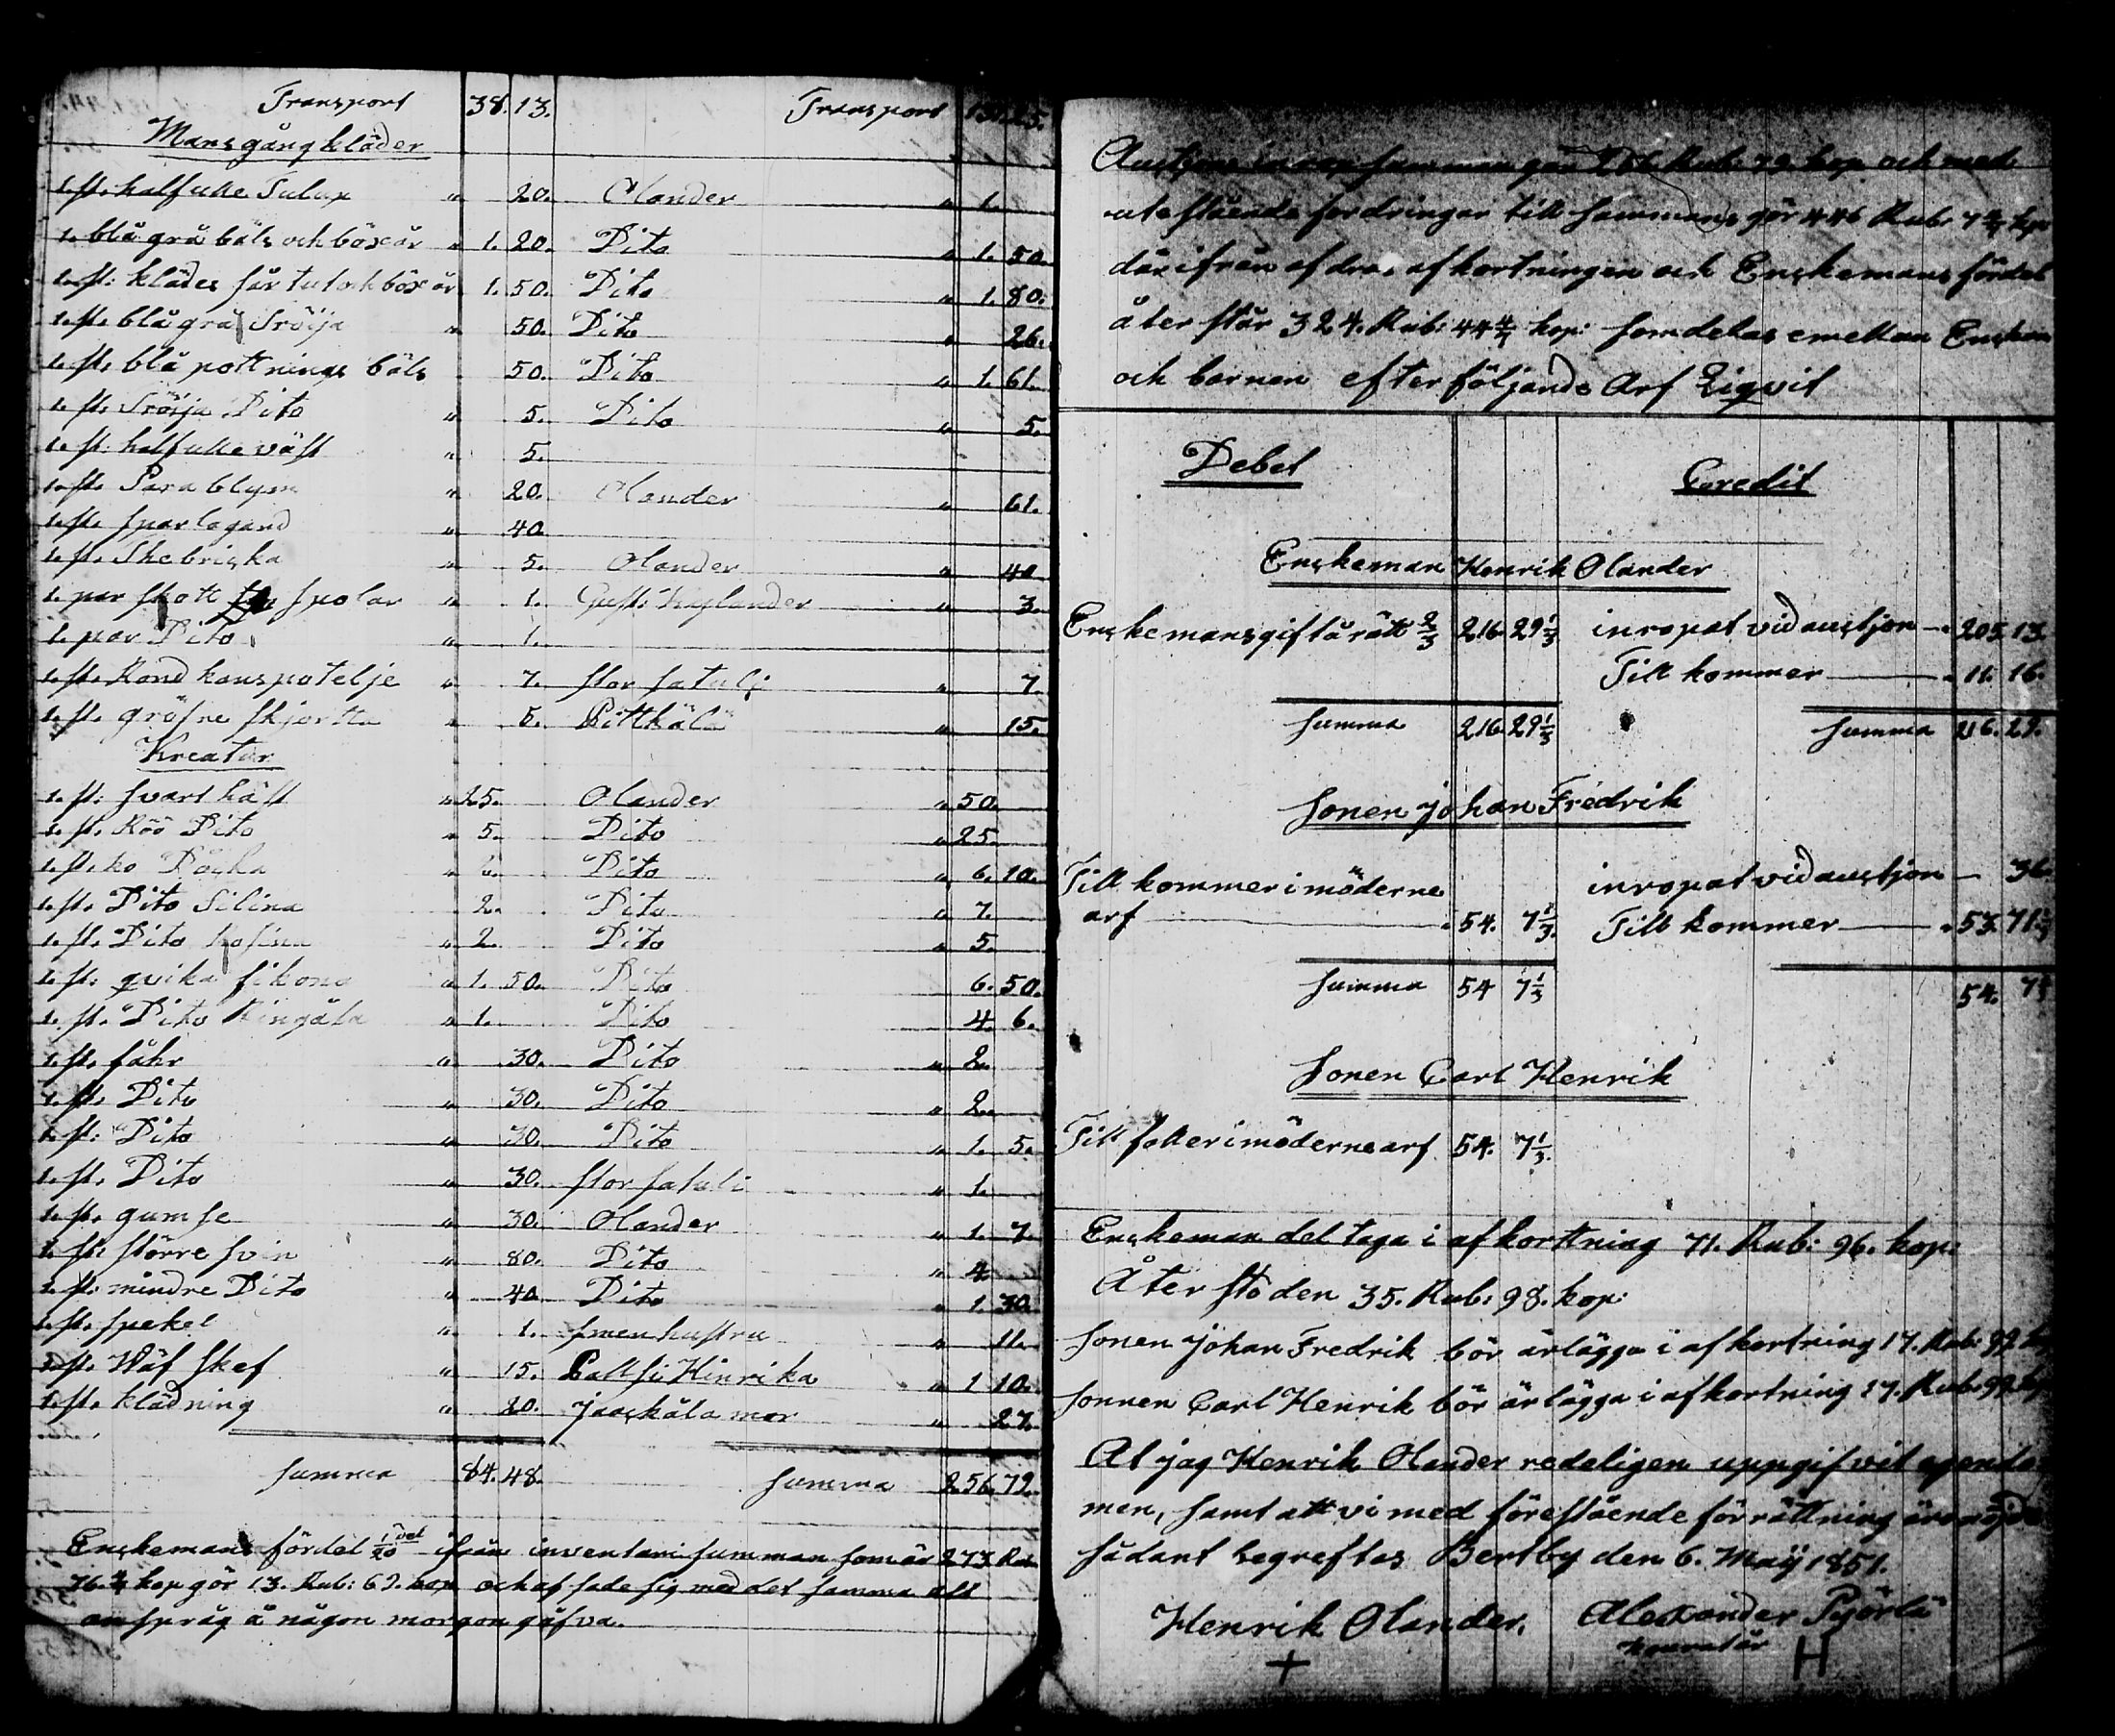 Transport 38. 13. Transport
Mansgångkläder
1. st: halfulle Tulup " 20. Olander " 1.
1. blå grå bäls och böxår " 1. 20. Dito " 1. 50.
1. st: klädes sårtut och böxår 1. 50. Dito " 1. 80.
1. st. blå grå Tröija " 50. Dito " 26.
1. st. blå pottnings bäls 50. Dito " 1. 61.
1. st. Tröija Dito " 5. Dito " 5.
1. st. halfulle väst " 5.
1. st. Para blym " 20. Olander " 61.
1. st. sparlagand " 40.
1. st. Skebriska " 5. Olander " 40
1. par skott spolar " 1. Gust: Wylander " 3.
1. par Dito " 1.
1. st. Rond konspotelje " 7. storsatuli " 7.
1. st. gröfne skjortta " 5. Pittkälä " 15.
Kreatur
1. st: svart häst " 25. Olander " 50.
1. st. Röö Dito " 5. Dito " 25.
1. st. ko Dito " 6. 10.
1. st. Dito Silina 2. Dito " 7.
1. st. Dito " 2. Dito " 5.
1. st: qvika fikona " 1. 50. Dito 6. 50.
1. st. Dito " 1. Dito 4. 6.
1. st. fåhr " 30. Dito " 2.
1. st. Dito " 30. Dito " 2.
1. st: Dito " 30. Dito " 1. 5.
1. st. Dito " 30. storsatuli " 1.
1. st. gumse " 30. Olander " 1. 7.
1. st: större svin " 80. Dito " 4.
1. st. mindre Dito " 40. Dito " 1. 30.
1. st. spekel " 1. smenhustru " 11.
1. st. Wäf skef " 15. Pallsi Hinrika " 1 10.
1. st. klädning " 20. Jaaskäla mor " 27.
summa 84. 48. summa 256. 79.
Enskemans fördel 1/20 del ifrån inventari summan som är 273. Rub.
76. kop gör 13. Rub: 69. kop och af sade sig med det samma alt
anspråg å någon morgon gåfva.
Auctjons inrop summan gör 256. Rub: 79. kop och med
utestående fordringar till sammans gör 446 Rub: 7 4/7 kop
därifrån afdras afkortningen och Enskemans fördel
åter står 324. Rub: 44 4/7 kop: som delas emellan Enskem
och barnen efter följande Arf Liqvit
Debet Credit
Enskeman Henrik Olander
Enskemansgiftårätt 2/3 216 29 1/3 inropat vid austjon " 205. 13.
Till kommer " 11. 16.
summa 216 29 1/3 summa 216. 29.
sonen Johan Fredrik
Till kommer i möderne inropat vid austjon 36.
arf " 54. 7 1/3. Till kommer " 53. 71 1/3
summa 54 7 1/3 54. 7 1/3
sonen Carl Henrik
Till faller i möderne arf 54. 7 1/3.
Enskeman del taga i afkorttning 71. Rub: 96. kop:
Åter stoden 35. Rub: 98. kop:
sonen Johan Fredrik bör ärlägga i afkortning 17. Rub: 99. kop
sonnen Carl Henrik bör ärlägga i afkortning 17. Rub: 99. kop
At jag Henrik Olander redeligen uppgifvit egendo
men, samt att vi med förestående förrättning äro nöjde
sådant begreftas Bertby den 6. Maij 1851.
Henrik Olander. Alexander Pyörlä
+ kouratår H